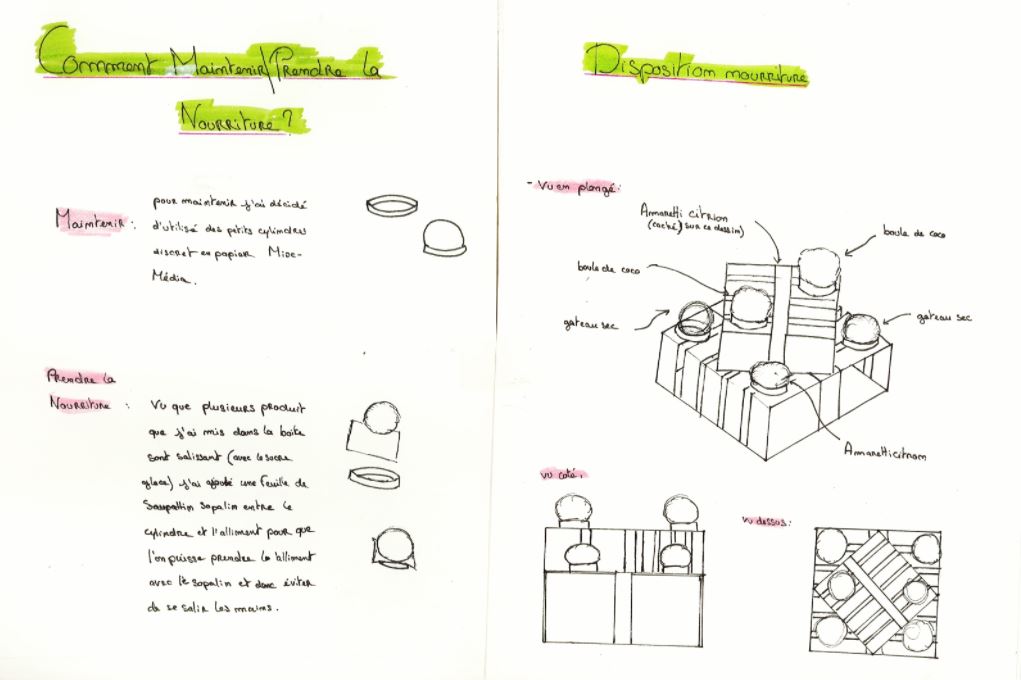 Comment Maintenir/Prendre la
Nourriture ?
Maintenir :
pour maintenir j'ai décidé
d'utilisé des petits cylindres
discret en papier Mixe-
Média.
Prendre la
Nourriture :
Vu que plusieurs produit
que j'ai mis dans la boite
sont salissant (avec le sucre
glace) j'ai ajouté une feuille de
sopalin entre le
cylindre et l'alliment pour que
l'on puisse prendre l'alliment
avec le sopalin et donc éviter
de se salir les mains.
Disposition nourriture
- Vu en plongé :
Amaretti citrion
(caché) sur ce dessin)
boule de coco
boule de coco
gateau sec
gateau sec
Amaretti citron
vu coté :
vu dessus :